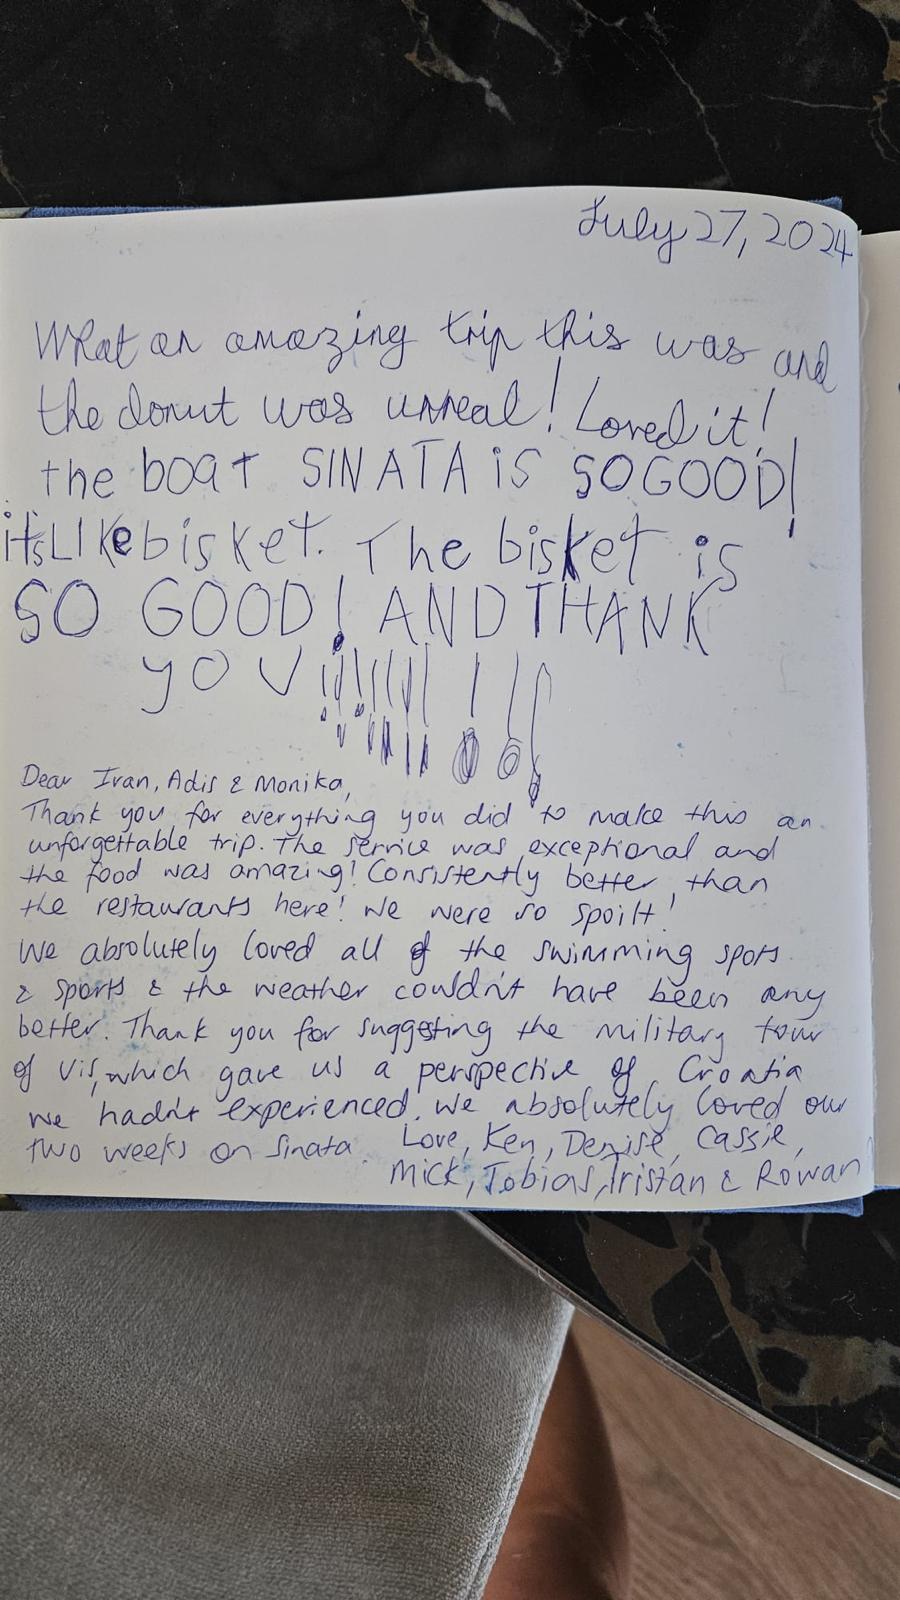 July 27, 2024
What an amazing trip this was and
the donut was unreal! Loved it!
the boat SINATA iS SO GOOD!
it's LIKe bisket. The bisket is
SO GOOD! AND THANK
YOU!!!!!!!!!!
Dear Ivan, Adis & Monika,
Thank you for everything you did to make this an
unforgettable trip. The service was exceptional and
the food was amazing! Consistently better than
the restaurants here! We were so spoilt!
We absolutely loved all of the swimming spots
& sports & the weather couldn't have been any
better. Thank you for suggesting the military tour
of Vis, which gave us a perspective of Croatia
we hadn't experienced. We absolutely loved our
two weeks on Sinata. Love, Ken, Denise, Cassie,
Mick, Tobias, Tristan & Rowan